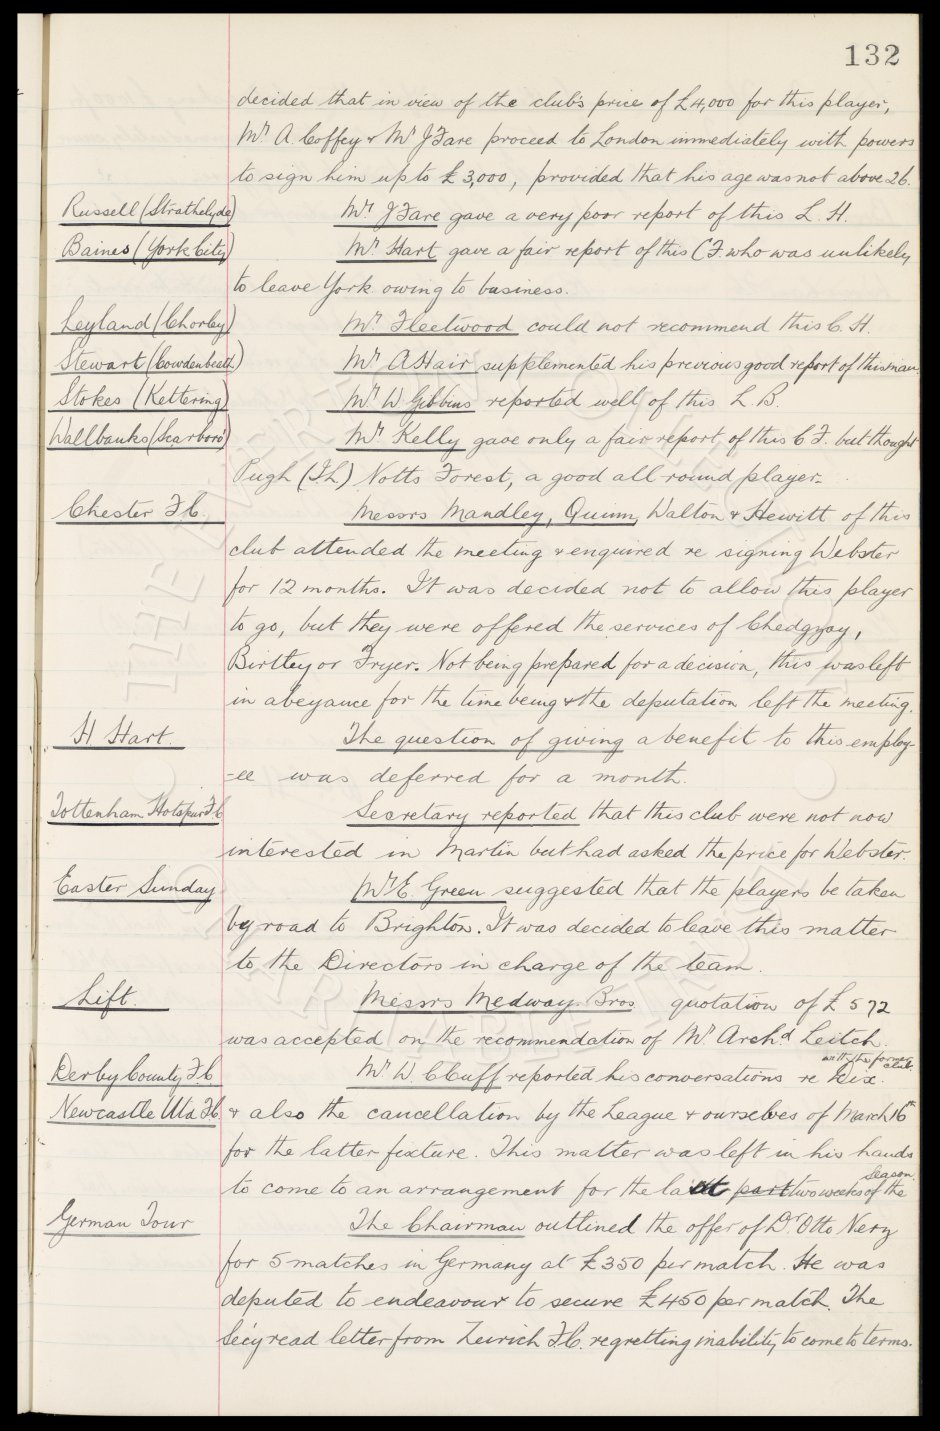 132
decided that in view of the club's price of £4,000 for this player,
Mr A. Coffey & Mr J Fare proceed to London immediately with powers
to sign him up to £3,000, provided that his age was not above 26.
Russell (Strathclyde) Mr. J Fare gave a very poor report of this L. H.
Baines (York City) Mr. Hart gave a fair report of this C.F. who was unlikely
to leave York owing to business.
Leyland (Chorley) Mr. Fleetwood could not recommend this C. H.
Stewart (Cowdenbeath) Mr A Hair supplemented his previous good report of this man.
Stokes (Kettering) Mr. W Gibbins reported well of this L. B.
Wallbanks (Scarboro') Mr. Kelly gave only a fair report of this C F. but thought
Pugh (I L) Notts Forest, a good all round player.
Chester F.C. Messrs Mandley, Quinn, Walton & Hewitt of this
club attended the meeting & enquired re signing Webster
for 12 months. It was decided not to allow this player
to go, but they were offered the services of Chedgzoy,
Birtley or Fryer. Not being prepared for a decision, this was left
in abeyance for the time being & the deputation left the meeting.
H Hart. The question of giving a benefit to this employ-
-ee was deferred for a month.
Tottenham Hotspur F.C Secretary reported that this club were not now
interested in Martin but had asked the price for Webster.
Easter Sunday Mr E. Green suggested that the players be taken
by road to Brighton. It was decided to leave this matter
to the Directors in charge of the team.
Lift. Messrs Medway Bros quotation of £572
was accepted on the recommendation of Mr. Archd Leitch.
with the former club.
Derby County F.C Mr. W. C Cuff reported his conversations re Dix.
Newcastle Utd F.C. & also the cancellation by the League & ourselves of March 16th
for the latter fixture. This matter was left in his hands
season.
to come to an arrangement for the last part two weeks of the
German Tour The Chairman outlined the offer of Dr. Otto Nerz
for 5 matches in Germany at £350 per match. He was
deputed to endeavour to secure £450 per match. The
Sec'y read letter from Zeurich F.C. regretting inability to come to terms.